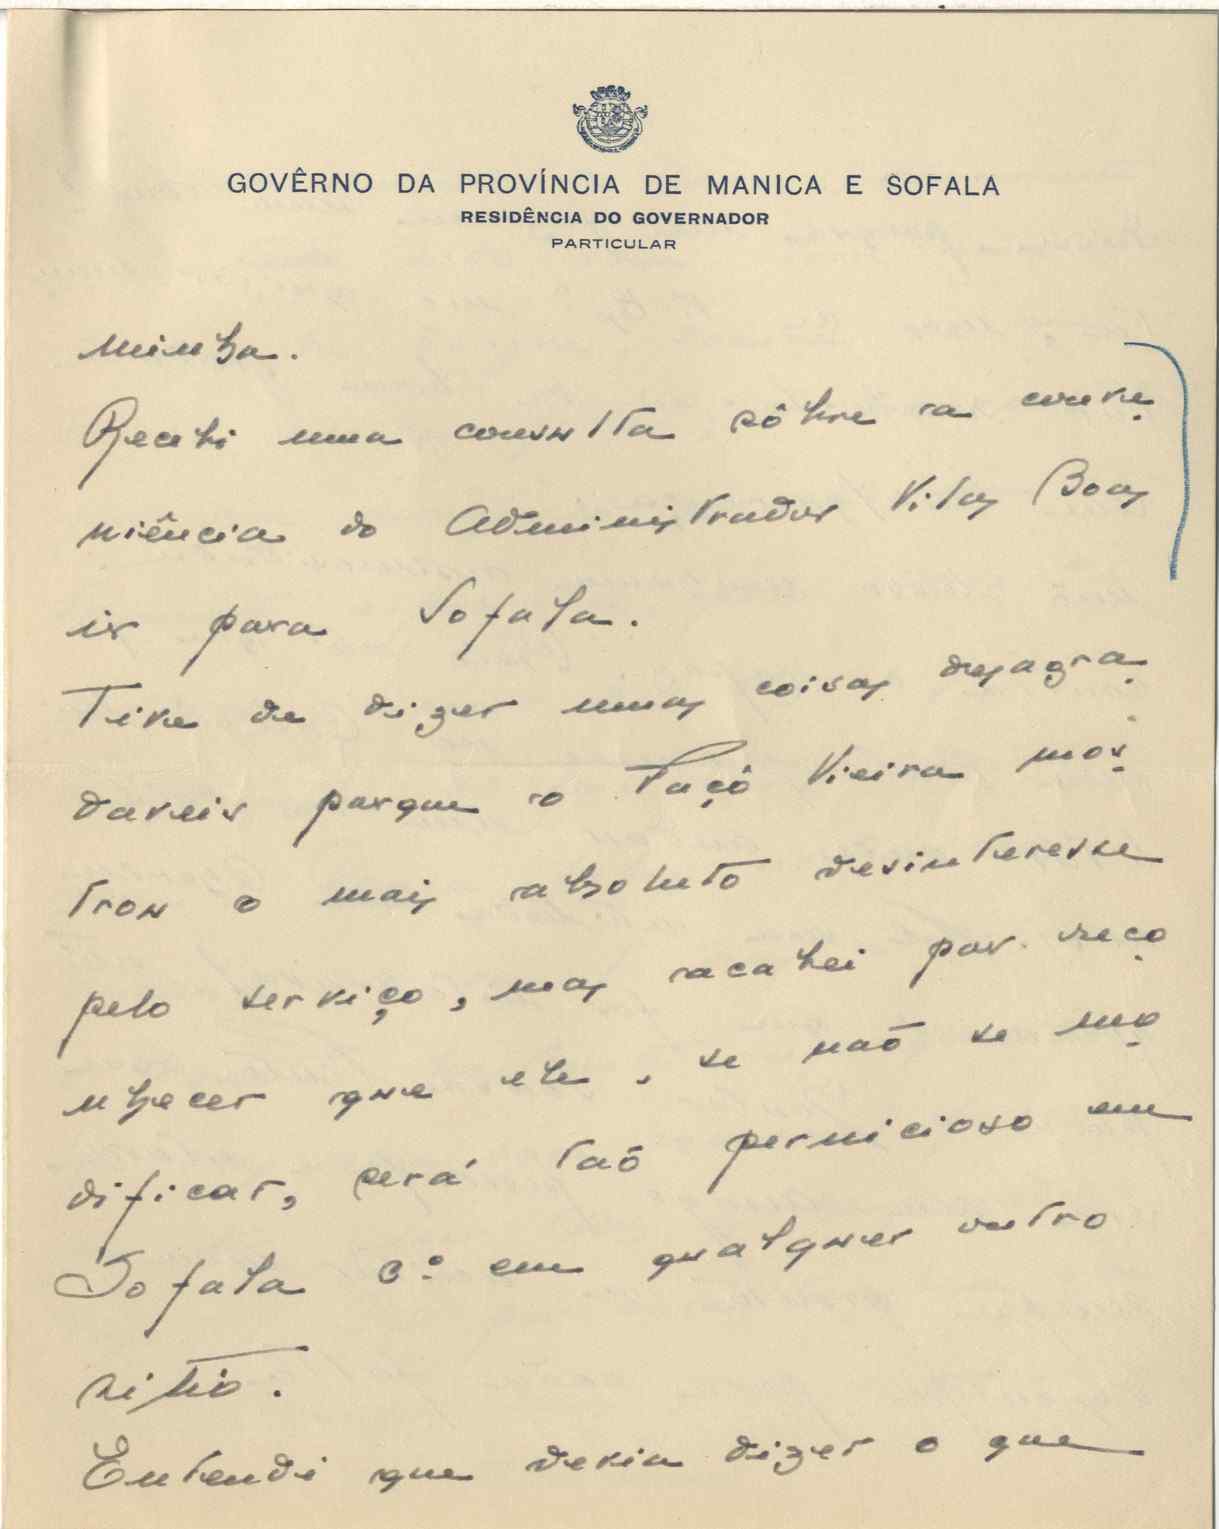 GOVÊRNO DA PROVÍNCIA DE MANICA E SOFALA
RESIDÊNCIA DO GOVERNADOR
PARTICULAR
minha.
Recebi uma consulta sôbre a conve
niência do Administrador Vilas Boas
ir para Sofala.
Tive de dizer umas coisas desagra
daveis porque o Paçô Vieira mos
trou o mais absoluto desinteresse
pelo serviço, mas acabei por reco
nhecer que ele, se não se mo
dificar, será tão pernicioso em
Sofala cº em qualquer outro
sitio.
Entendi que devia dizer o que